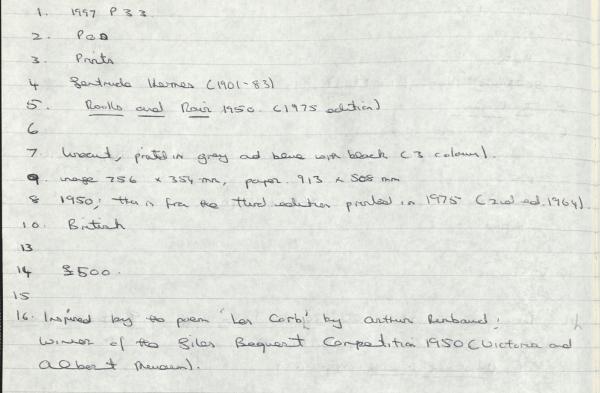 1. 1997 P 33.
2. P&D
3. Prints
4 Gertrude Hermes (1901-83)
5. Rooks and Rain 1950. (1975 edition)
6
7 Linocut, printed in grey and blue with black (3 colours).
9. image 256 × 354 mm, paper. 913 × 508 mm
8 1950; this is from the third edition printed in 1975 (2nd ed. 1964).
10. British
13
14 £500.
15
16. Inspired by the poem 'Les Corb' by Arthur Rimbaud;
Winner of the Giles Bequest Competition 1950 (Victoria and
Albert Museum).